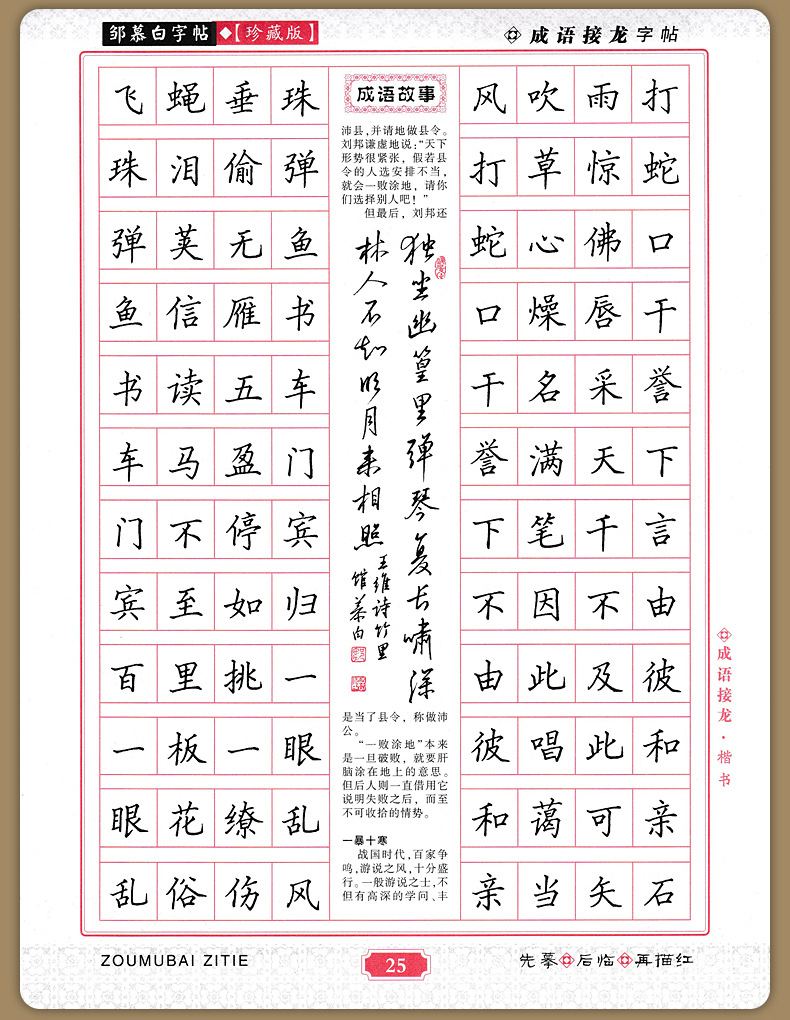 邹慕白字帖 【珍藏版】
成语接龙字帖
飞蝇垂珠
珠泪偷弹
弹荚无鱼
鱼信雁书
书读五车
车马盈门
门不停宾
宾至如归
百里挑一
一板一眼
眼花缭乱
乱俗伤风
成语故事
沛县，并请地做县令。
刘邦谦虚地说：“天下
形势很紧张，假若县
令的人选安排不当，
就会一败涂地，请你
们选择别人吧！”
但最后，刘邦还
独坐幽篁里弹琴复长啸深
林人不知明月来相照
王维诗竹里
馆慕白
是当了县令，称做沛
公。
“一败涂地”本来
是一旦破败，就要肝
脑涂在地上的意思。
但后人则一直借用它
说明失败之后，而至
不可收拾的情势。
一暴十寒
战国时代，百家争
鸣，游说之风，十分盛
行。一般游说之士，不
但有高深的学问、丰
风吹雨打
打草惊蛇
蛇心佛口
口燥唇干
干名采誉
誉满天下
下笔千言
不因不由
由此及彼
彼唱此和
和蔼可亲
亲当矢石
成语接龙·楷书
ZOUMUBAI ZITIE
25
先摹 后临 再描红